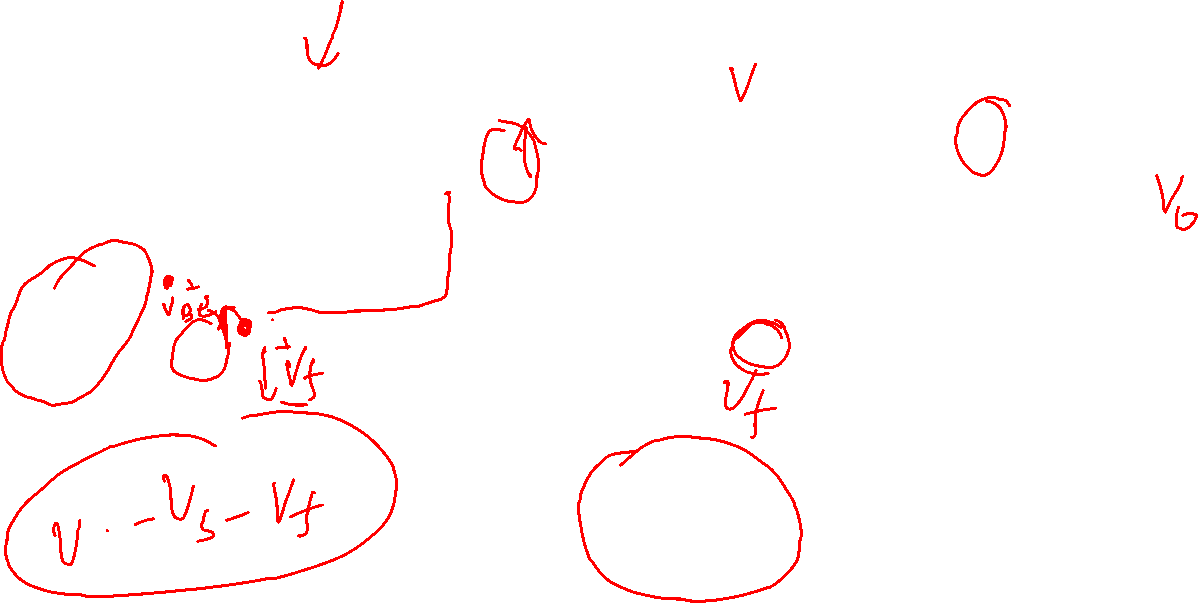 V
V₀
V_f
V_f
V - V_s - V_f